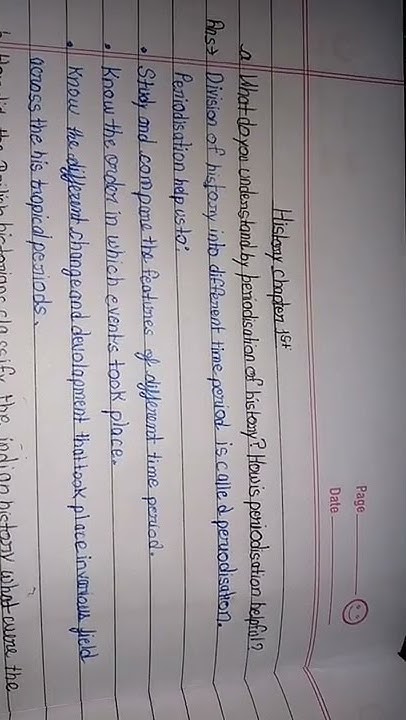 Page
Date
History chapter 1st
a What do you understand by periodisation of history? How is periodisation helpful?
Ans+ Division of history into different time period is called periodisation.
Periodisation help us to:
• Study and compare the features of different time period.
• Know the order in which events took place.
• Know the different change and development that took place in various field
across the his tropical periods.
the British historians classify the indian history what were the